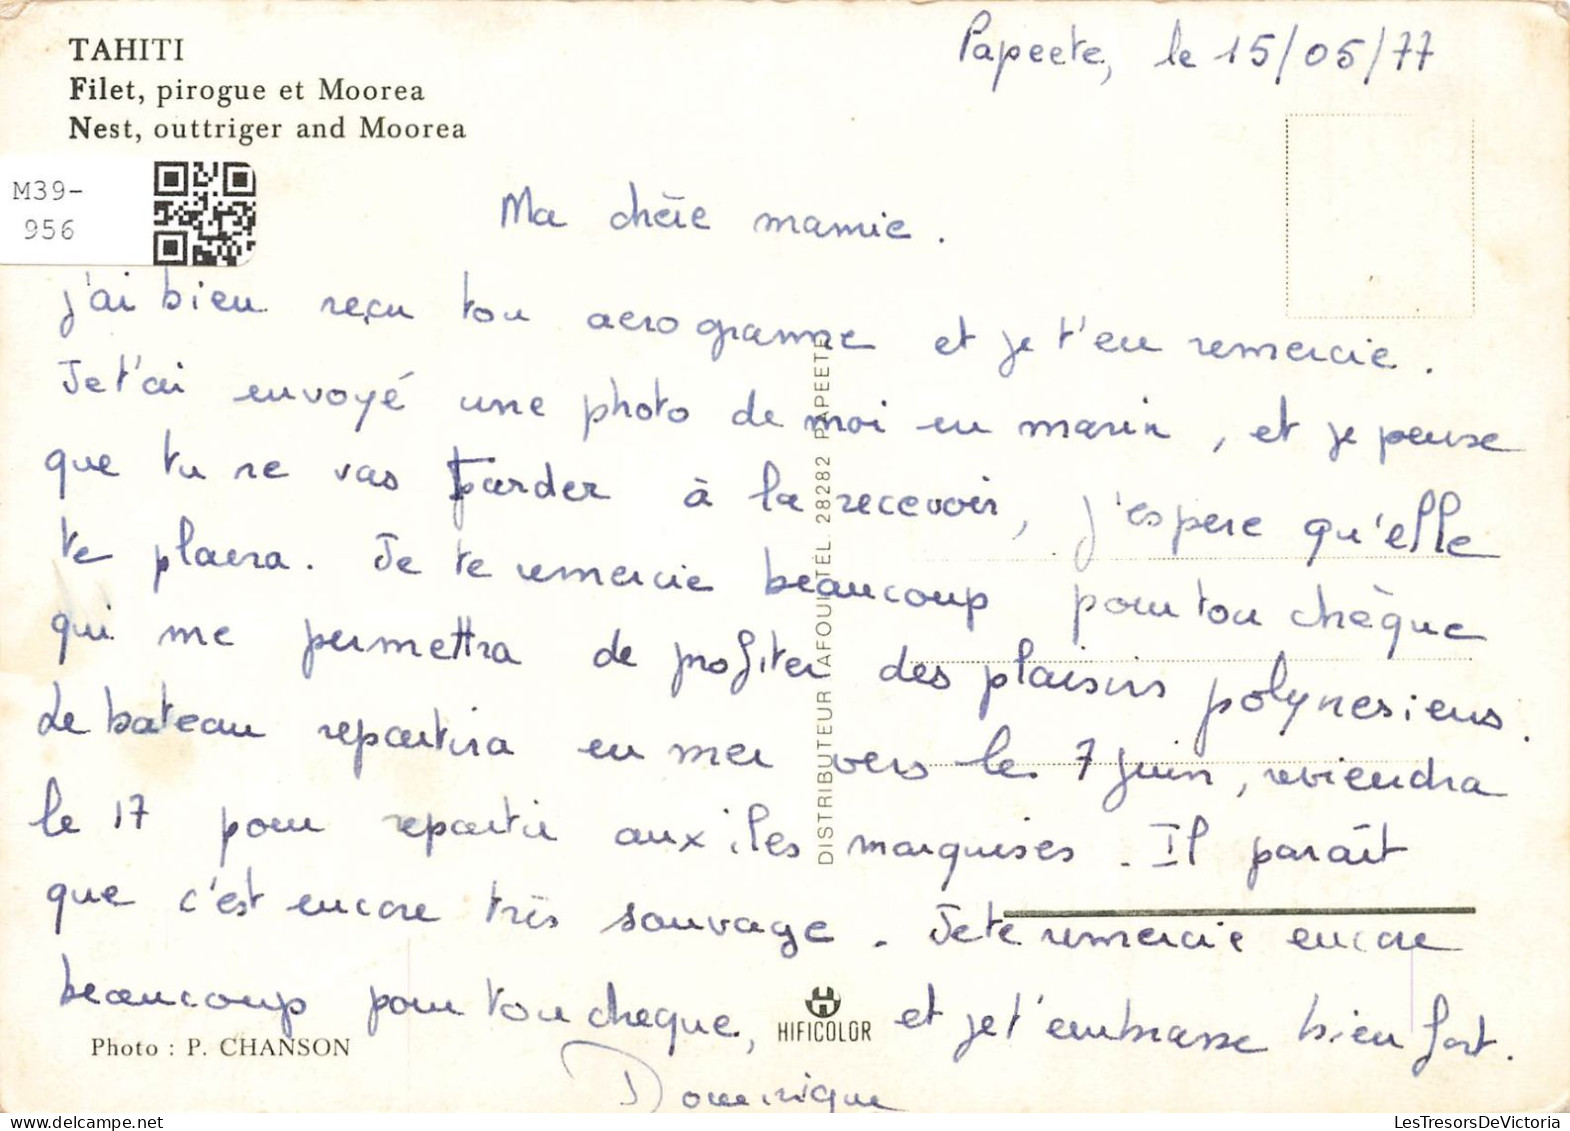 TAHITI
Filet, pirogue et Moorea
Nest, outtriger and Moorea
M39-
956
Papeete, le 15/05/77
Ma chère mamie.
J'ai bien reçu ton aerogramme et je t'en remercie.
Je t'ai envoyé une photo de moi en marin, et je pense
que tu ne vas tarder à la recevoir, j'espere qu'elle
te plaira. Je te remercie beaucoup pour ton chèque
qui me permettra de profiter des plaisirs polynesiens.
Le bateau repartira en mer vers le 7 juin, reviendra
le 17 pour repartir aux iles marquises. Il paraît
que c'est encore très sauvage. Je te remercie encore
beaucoup pour ton cheque, et je t'embrasse bien fort.
Dominique
DISTRIBUTEUR TAFOUITEL 28282 PAPEETE
HIFICOLOR
Photo : P. CHANSON
LesTresorsDeVictoria